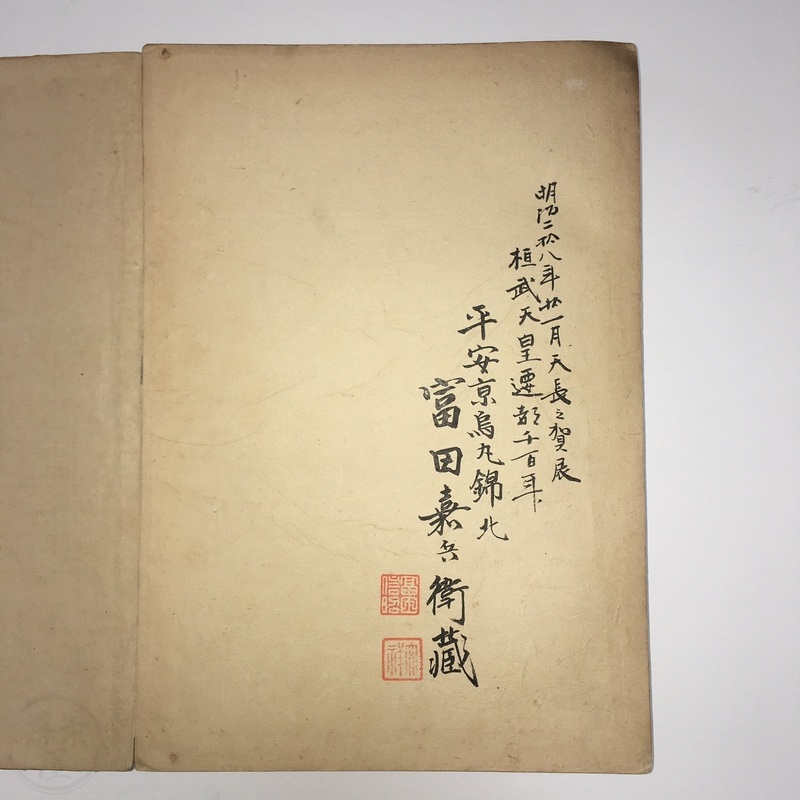 明治二拾八年拾一月天長之賀辰
桓武天皇遷都千百年
平安京烏丸錦北
富田嘉兵衛藏